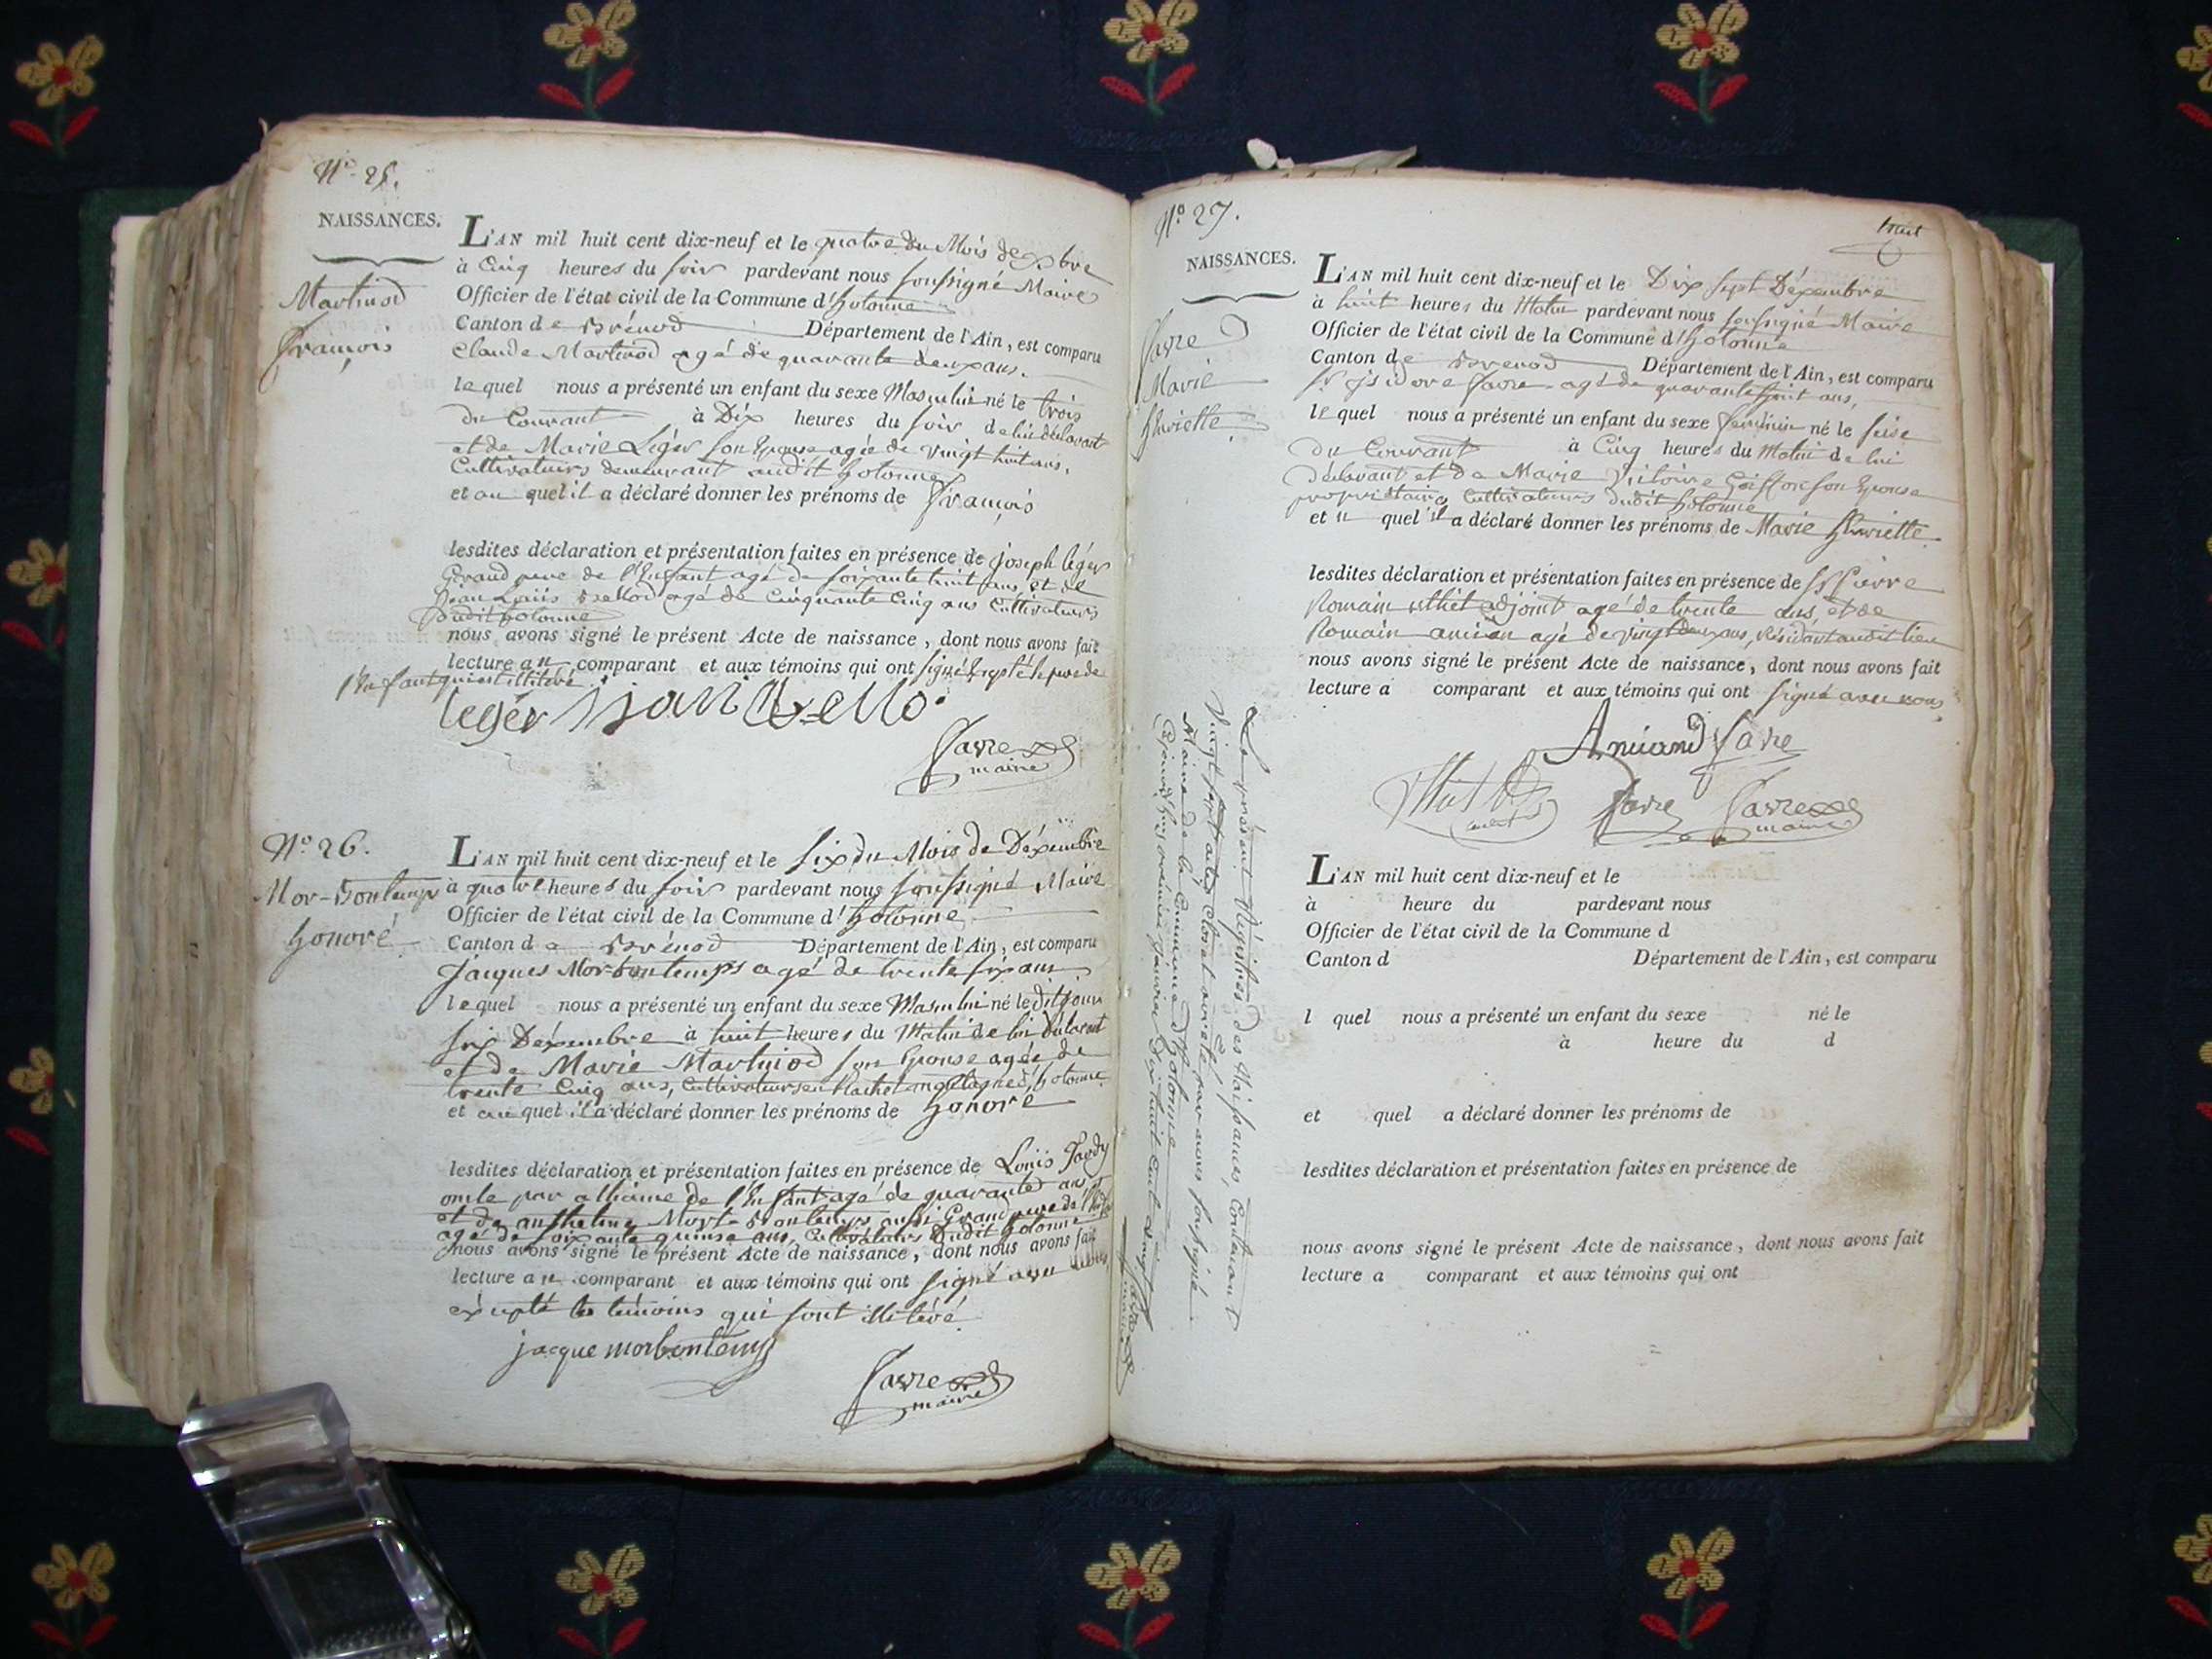 N.º 25.
NAISSANCES.
Martinod
François
L'AN mil huit cent dix-neuf et le quatre du Mois de xbre
à Cinq heures du soir pardevant nous soussigné Maire
Officier de l'état civil de la Commune d'hotonne
Canton de Brénod Département de l'Ain, est comparu
Claude Martinod agé de quarante deux ans.
lequel nous a présenté un enfant du sexe Masculin né le trois
du Courant à Dix heures du soir de lui déclarant
et de Marie Léger son Epouse agée de vingt huit ans.
Cultivateurs demeurant audit hotonne
et au quel il a déclaré donner les prénoms de François
lesdites déclaration et présentation faites en présence de joseph léger
Grand pere de l'Enfant agé de soixante huit ans, et de
jean Louis agé de Cinquante Cinq ans Cultivateurs
dudit hotonne
nous avons signé le présent Acte de naissance, dont nous avons fait
lecture au comparant et aux témoins qui ont signé Excepté le pere de
l'Enfant qui est illitéré.
leger jan
favre
maire
N.º 26.
Mor-Bontemps
honoré
L'AN mil huit cent dix-neuf et le six du Mois de Déxembre
à quatre heures du soir pardevant nous soussigné Maire
Officier de l'état civil de la Commune d'hotonne
Canton de Brénod Département de l'Ain, est comparu
Jacques Mor-bontemps agé de trente six ans
lequel nous a présenté un enfant du sexe Masculin né le dit jour
six Déxembre à huit heures du Matin de lui déclarant
et de Marie Martinod son Epouse agée de
trente Cinq ans, Cultivateurs en d'hotonne
et au quel il a déclaré donner les prénoms de honoré
lesdites déclaration et présentation faites en présence de Louis
oncle par alliance de l'Enfant agé de quarante ans
et de anthelme Mort-Bontemps aussi Grand pere de l'Enfant
agé de soixante quinse ans, Cultivateurs dudit hotonne
nous avons signé le présent Acte de naissance, dont nous avons fait
lecture au comparant et aux témoins qui ont signé avec nous,
éxcepté les témoins qui sont illitéré.
jacque morbontemps
favre
maire
N.º 27.
huit
NAISSANCES.
favre
Marie
henriette
L'AN mil huit cent dix-neuf et le Dix sept Déxembre
à huit heures du Matin pardevant nous soussigné Maire
Officier de l'état civil de la Commune d'hotonne
Canton de Brenod Département de l'Ain, est comparu
Sr jsidore favre agé de quarante huit ans,
lequel nous a présenté un enfant du sexe feminin né le seise
du Courant à Cinq heures du Matin de lui
déclarant et de Marie Victoire son Epouse
propriétaires Cultivateurs dudit hotonne
et quel il a déclaré donner les prénoms de Marie henriette.
lesdites déclaration et présentation faites en présence de Sr pierre
Romain adjoint agé de trente ans, et de
Romain agé de vingt deux ans, Résidant audit lieu
nous avons signé le présent Acte de naissance, dont nous avons fait
lecture a comparant et aux témoins qui ont signé avec nous,
favre
favre favre
maire
L'AN mil huit cent dix-neuf et le
à heure du pardevant nous
Officier de l'état civil de la Commune d
Canton d Département de l'Ain, est comparu
l quel nous a présenté un enfant du sexe né le
à heure du d
et quel a déclaré donner les prénoms de
lesdites déclaration et présentation faites en présence de
nous avons signé le présent Acte de naissance, dont nous avons fait
lecture a comparant et aux témoins qui ont
Le présent Régistre des Naissances, Contenant
Vingt sept actes Clos et arreté par nous soussigné
Maire de la Commune d'hotonne
Cejourd'hui premier janvier dix huit cent vingt
favre
maire